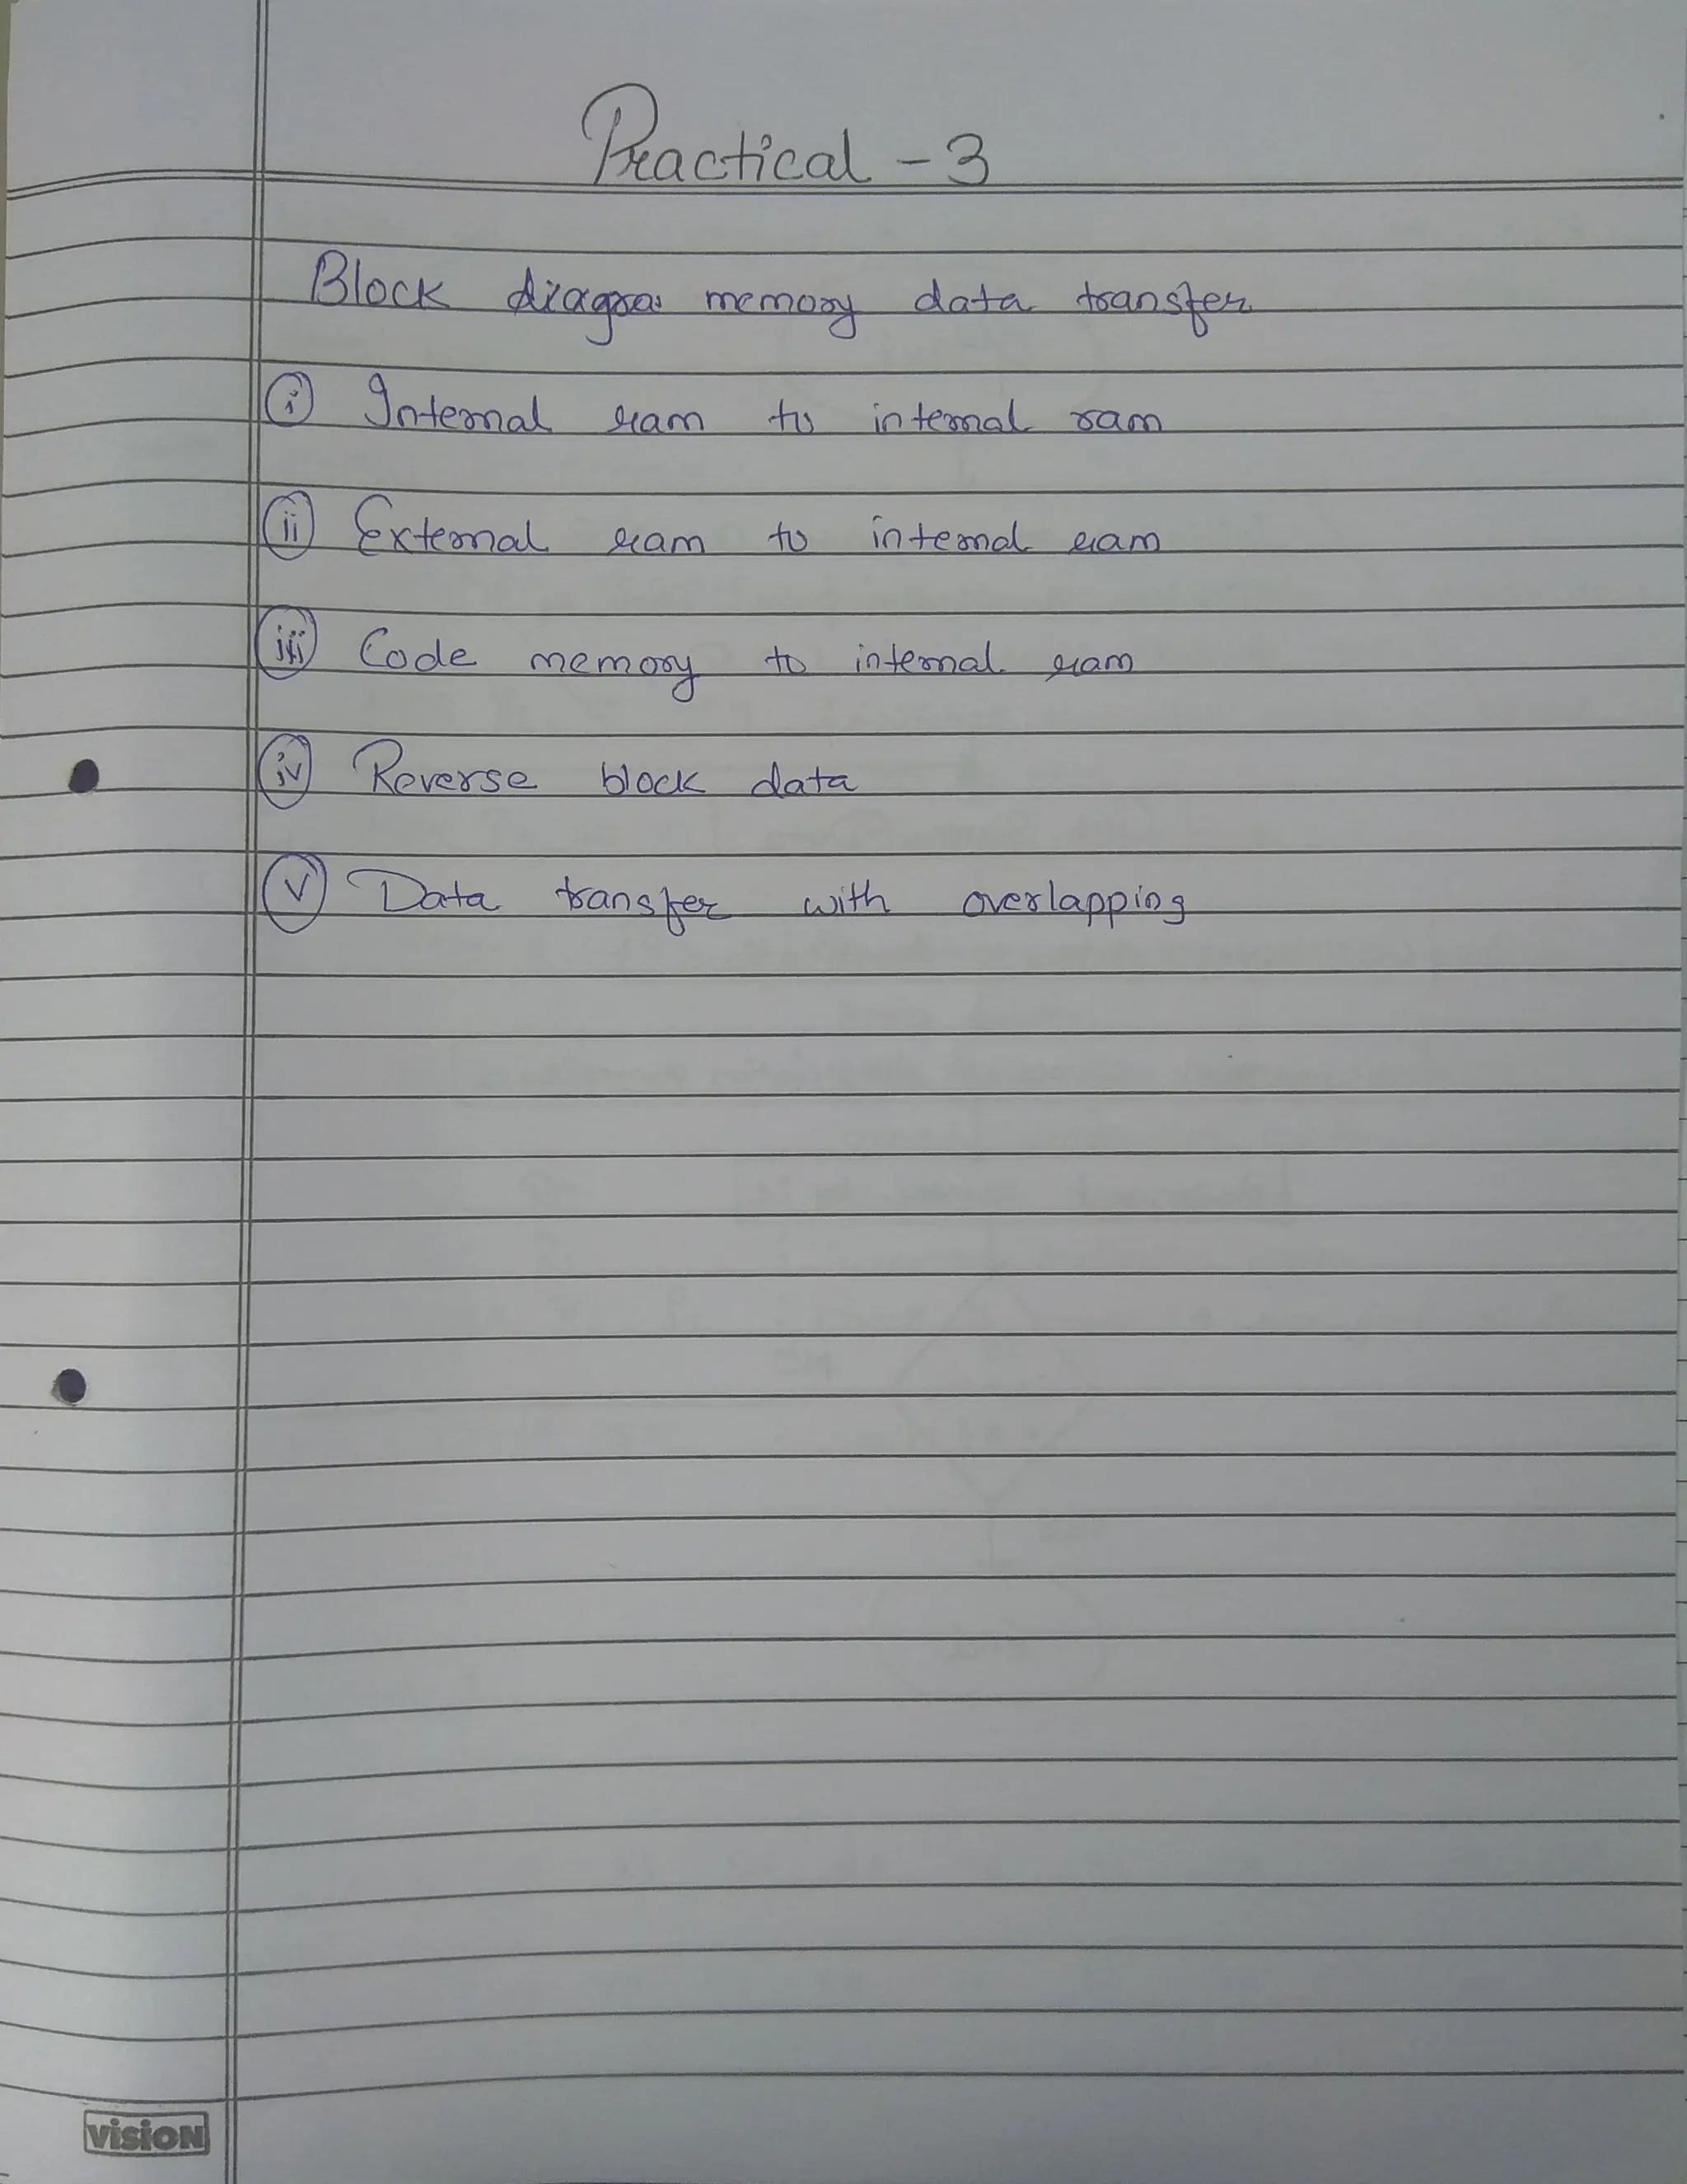 Practical - 3
Block diagra memory data transfer
i Internal ram to internal ram
ii External ram to internal ram
iii Code memory to internal ram
iv Reverse block data
v Data transfer with overlapping
vision